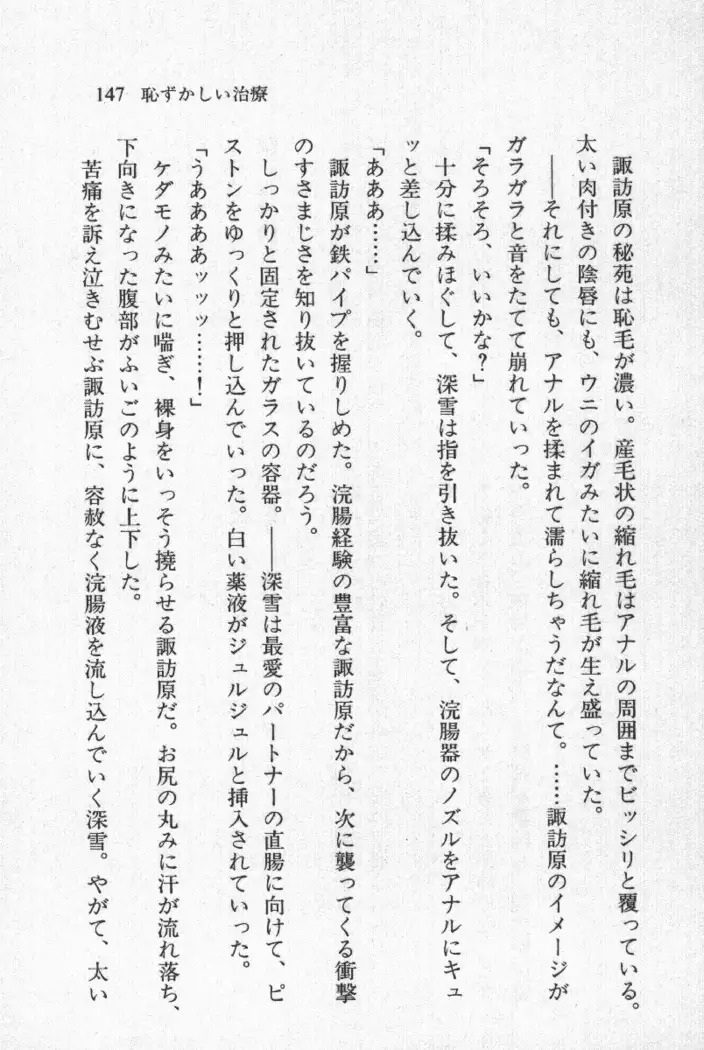 147 恥ずかしい治療
諏訪原の秘苑は恥毛が濃い。産毛状の縮れ毛はアナルの周囲までビッシリと覆っている。
太い肉付きの陰唇にも、ウニのイガみたいに縮れ毛が生え盛っていた。
――それにしても、アナルを揉まれて濡らしちゃうだなんて。……諏訪原のイメージが
ガラガラと音をたてて崩れていった。
「そろそろ、いいかな?」
十分に揉みほぐして、深雪は指を引き抜いた。そして、浣腸器のノズルをアナルにキュ
ッと差し込んでいく。
「あああ……」
諏訪原が鉄パイプを握りしめた。浣腸経験の豊富な諏訪原だから、次に襲ってくる衝撃
のすさまじさを知り抜いているのだろう。
しっかりと固定されたガラスの容器。――深雪は最愛のパートナーの直腸に向けて、ピ
ストンをゆっくりと押し込んでいった。白い薬液がジュルジュルと挿入されていった。
「うああああッッッ……!」
ケダモノみたいに喘ぎ、裸身をいっそう撓らせる諏訪原だ。お尻の丸みに汗が流れ落ち、
下向きになった腹部がふいごのように上下した。
苦痛を訴え泣きむせぶ諏訪原に、容赦なく浣腸液を流し込んでいく深雪。やがて、太い